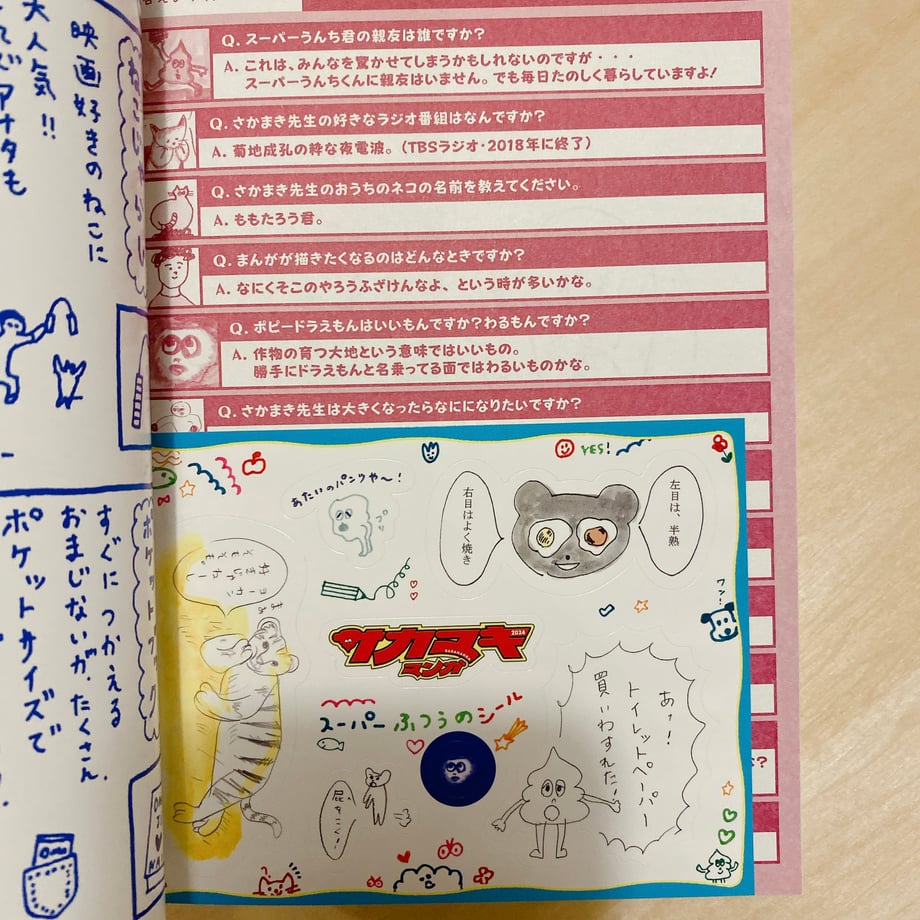 Q. スーパーうんち君の親友は誰ですか?
A. これは、みんなを驚かせてしまうかもしれないのですが・・・
スーパーうんちくんに親友はいません。でも毎日たのしく暮らしていますよ!
Q. さかまき先生の好きなラジオ番組はなんですか?
A. 菊地成孔の粋な夜電波。(TBSラジオ・2018年に終了)
Q. さかまき先生のおうちのネコの名前を教えてください。
A. ももたろう君。
Q. まんがが描きたくなるのはどんなときですか?
A. なにくそこのやろうふざけんなよ、という時が多いかな。
Q. ポピードラえもんはいいもんですか?わるもんですか?
A. 作物の育つ大地という意味ではいいもの。
勝手にドラえもんと名乗ってる面ではわるいものかな。
Q. さかまき先生は大きくなったらなにになりたいですか?
映画好きのねこに
大人気!!
アナタも
すぐにつかえる
おまじないが、たくさん
ポケットサイズで
YES!
あたいのパンツや〜!
プリ
右目はよく焼き
左目は、半熟
ワン!
サカマキ
2024
マンガ
スーパーふつうのシール
あっ!
トイレットペーパー
買いわすれた!
屁、すこく!